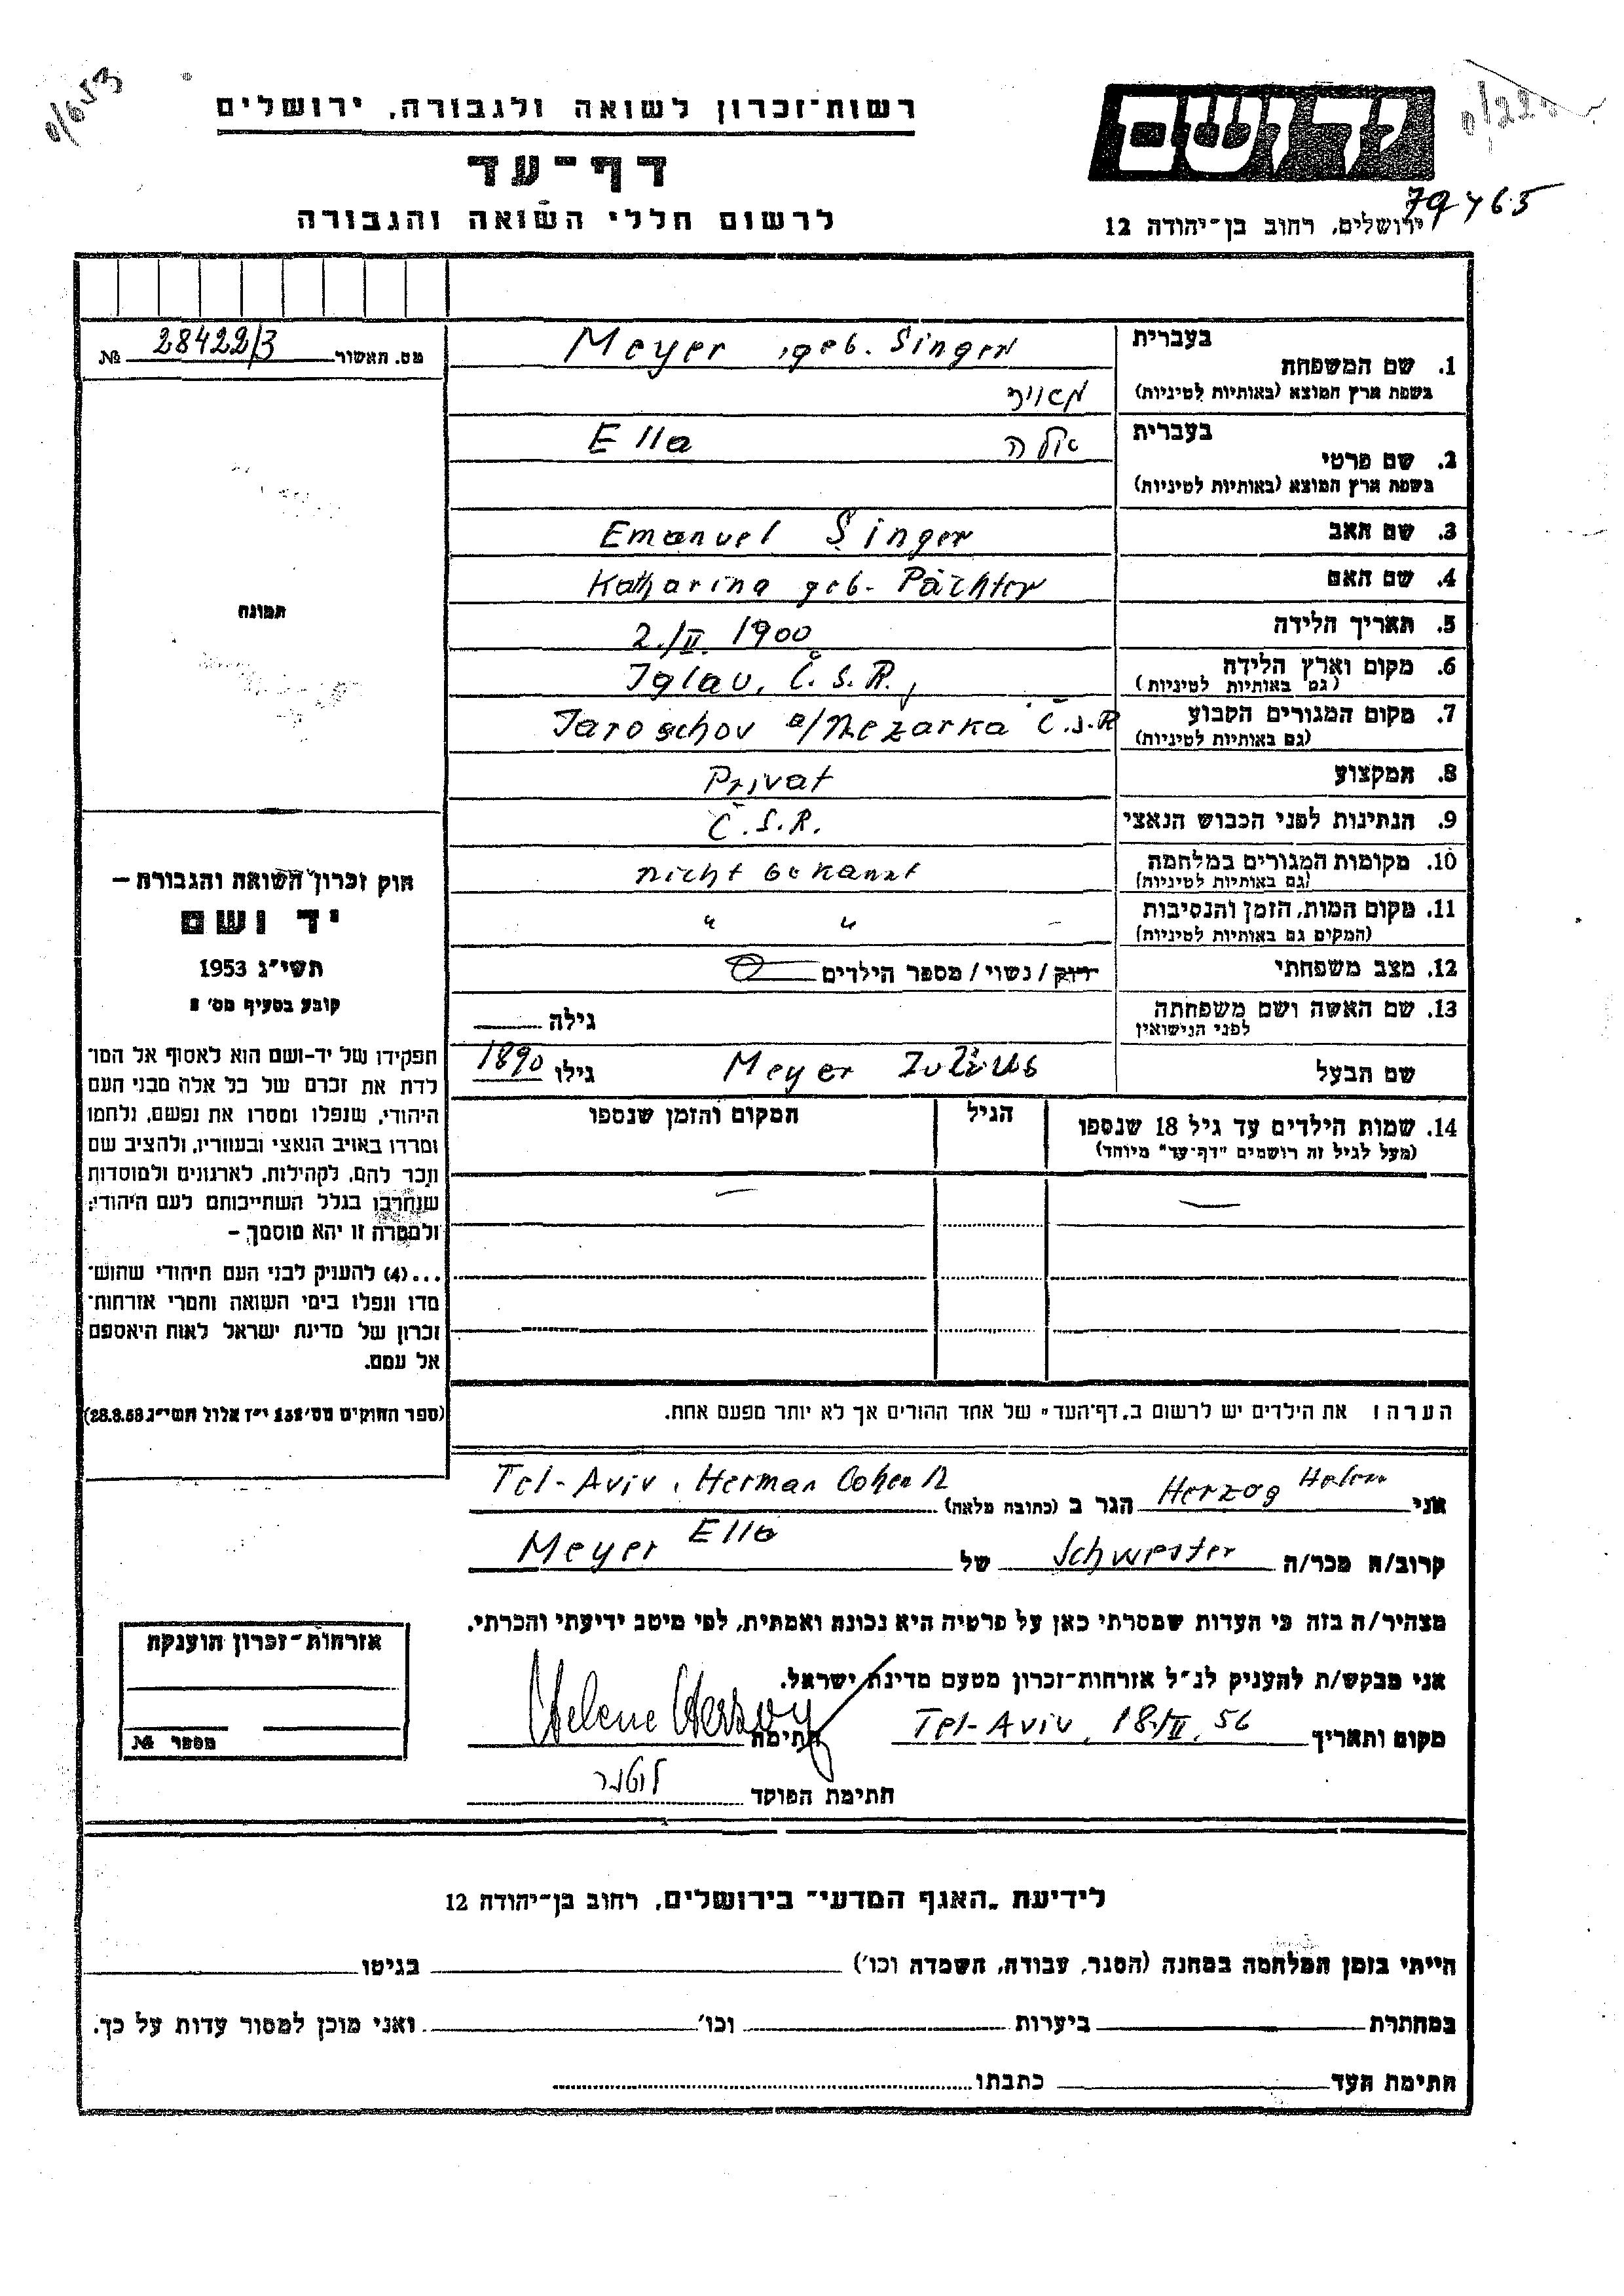 רשות־זכרון לשואה ולגבורה, ירושלים
דף־עד
לרשום חללי השואה והגבורה
יד ושם
79465
ירושלים, רחוב בן־יהודה 12
מס. האשור 28422/3 №
תמונה
חוק זכרון השואה והגבורה —
יד ושם
תשי״ג 1953
קובע בסעיף מס׳ 2
תפקידו של יד-ושם הוא לאסוף אל המו־
לדת את זכרם של כל אלה מבני העם
היהודי, שנפלו ומסרו את נפשם, נלחמו
ומרדו באויב הנאצי ובעוזריו, ולהציב שם
וזכר להם, לקהילות, לארגונים ולמוסדות
שנחרבו בגלל השתייכותם לעם היהודי;
ולמטרה זו יהא מוסמך —
...(4) להעניק לבני העם היהודי שהוש־
מדו ונפלו בימי השואה והמרי אזרחות־
זכרון של מדינת ישראל לאות היאספם
אל עמם.
(ספר החוקים מס׳ 132 י״ז אלול תשי״ג 28.8.53)
1. שם המשפחה בעברית Meyer, geb. Singer
בשפת ארץ המוצא (באותיות לטיניות) מאיר
2. שם פרטי בעברית אלה Ella
בשפת ארץ המוצא (באותיות לטיניות)
3. שם האב Emanuel Singer
4. שם האם Katharina geb. Pächter
5. תאריך הלידה 2./II. 1900
6. מקום וארץ הלידה Iglau, Č.S.R.,
(גם באותיות לטיניות)
7. מקום המגורים הקבוע Jaroschov a/Nezarka Č.S.R
(גם באותיות לטיניות)
8. המקצוע Privat
9. הנתינות לפני הכבוש הנאצי Č.S.R.
10. מקומות המגורים במלחמה nicht bekannt
(גם באותיות לטיניות)
11. מקום המות, הזמן והנסיבות " " –
(המקום גם באותיות לטיניות)
12. מצב משפחתי רוק / נשוי / מספר הילדים
13. שם האשה ושם משפחתה גילה
לפני הנישואין
שם הבעל Meyer Julius גילו 1890
14. שמות הילדים עד גיל 18 שנספו הגיל המקום והזמן שנספו
(מעל לגיל זה רושמים "דף־עד" מיוחד)
— —
הערה: את הילדים יש לרשום ב„דף־העד" של אחד ההורים אך לא יותר מפעם אחת.
אני Herzog Helene הגר ב (כתובת מלאה) Tel-Aviv, Herman Cohen 12
קרוב/ה מכר/ה Schwester של Meyer Ella
מצהיר/ה בזה כי העדות שמסרתי כאן על פרטיה היא נכונה ואמתית, לפי מיטב ידיעתי והכרתי.
אני מבקש/ת להעניק לנ״ל אזרחות־זכרון מטעם מדינת ישראל.
מקום ותאריך Tel-Aviv, 18./II. 56 חתימה Helene Herzog
חתימת הפוקד
אזרחות־זכרון הוענקה
מספר №
לידיעת „האגף המדעי" בירושלים, רחוב בן־יהודה 12
הייתי בזמן המלחמה במחנה (הסגר, עבודה, השמדה וכו׳) בגיטו
במחתרת ביערות וכו׳ ואני מוכן למסור עדות על כך.
חתימת העד כתבתו